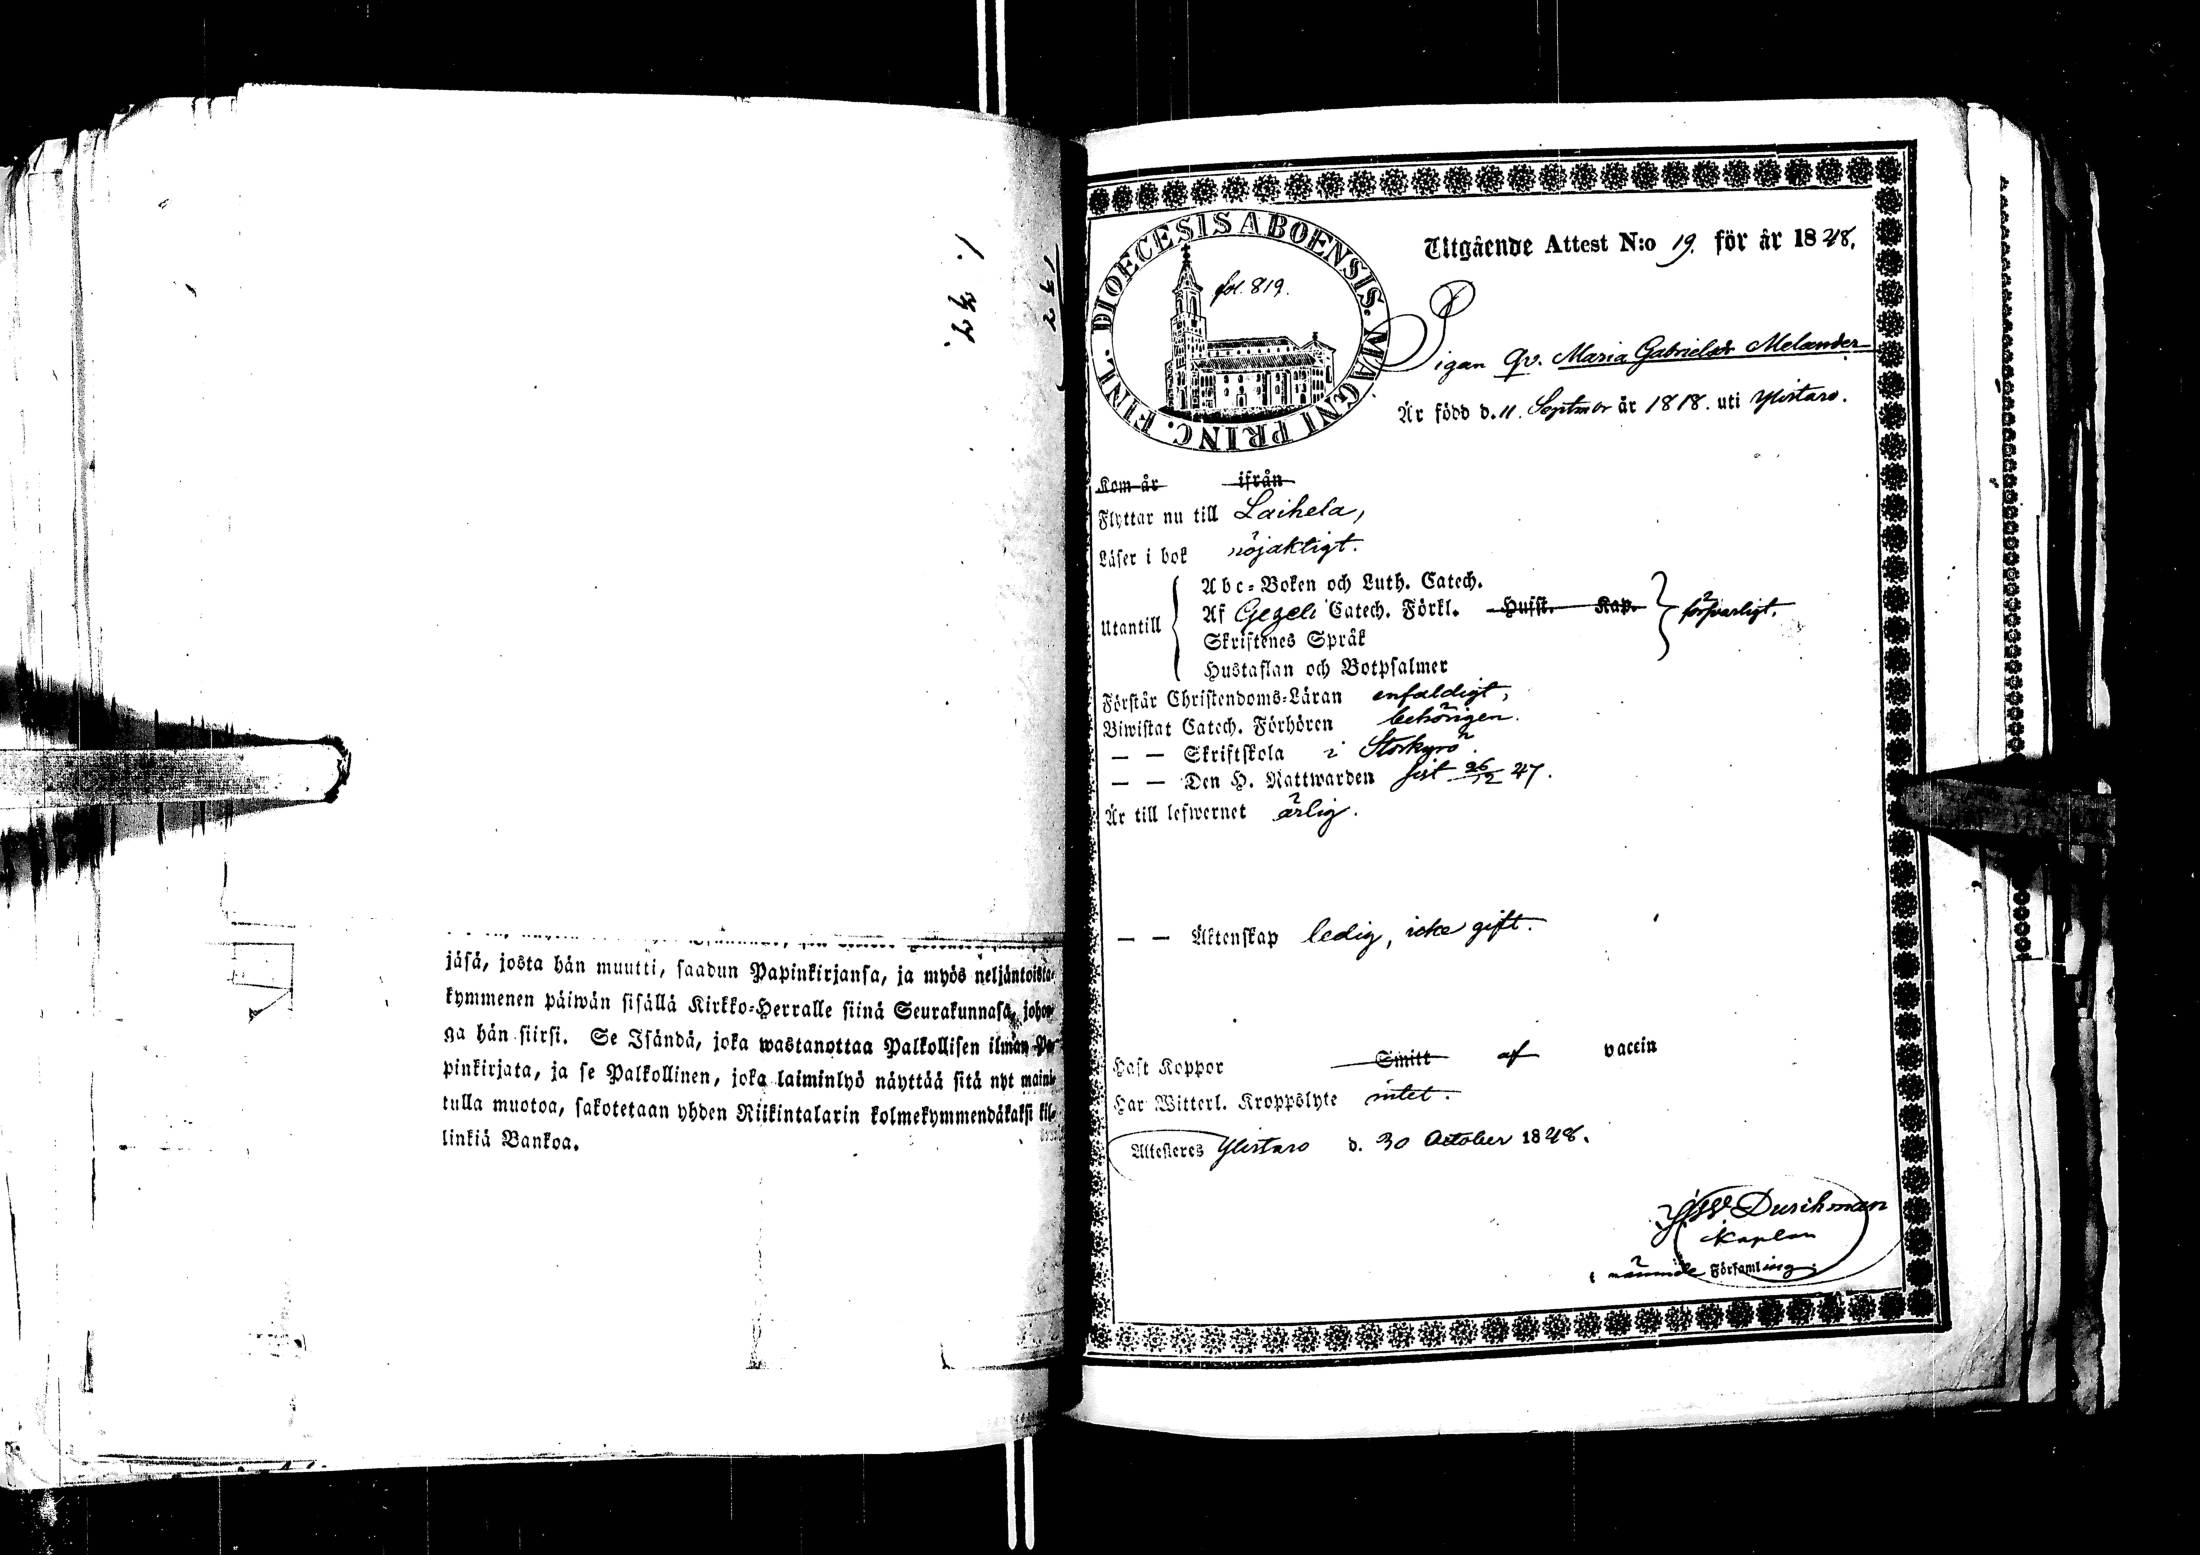 jäsä, josta hän muutti, saadun Papinkirjansa, ja myös neljäntoista-
kymmenen päiwän sisällä Kirkko-Herralle siinä Seurakunnasa, johon-
ga hän siirsi. Se Isändä, joka wastanottaa Palkollisen ilman Pa-
pinkirjata, ja se Palkollinen, joka laiminlyö näyttää sitä nyt maini-
tulla muotoa, sakotetaan yhden Riikintalarin kolmekymmendäkaksi kil-
linkiä Bankoa.
DIOECESIS ABOENSIS. MAGNI PRINC. FINL.
fol. 819.
Utgående Attest N:o 19. för år 1848.
Pigan Qv. Maria Gabrielsdr Melander
Är född d. 11. Septmbr år 1818. uti Ylistaro.
Kom år ifrån
Flyttar nu till Laihela,
Läser i bok nöjaktigt.
Utantill
Abc-Boken och Luth. Catech.
Af Gezeli Catech. Förkl. Hufst. Kap. försvarligt.
Skriftenes Språk
Hustaflan och Botpsalmer
Förstår Christendoms-Läran enfaldigt,
Biwistat Catech. Förhören behörigen.
— — Skriftskola i Storkyro.
— — Den H. Nattwarden sist 26/12 47.
Är till lefwernet ärlig.
— — Äktenskap ledig, icke gift.
Haft Koppor Smitt af vaccin
Har Witterl. Kroppslyte intet.
Attesteres Ylistaro d. 30 October 1848.
Durchman
Kaplan
i nämnde Församling.